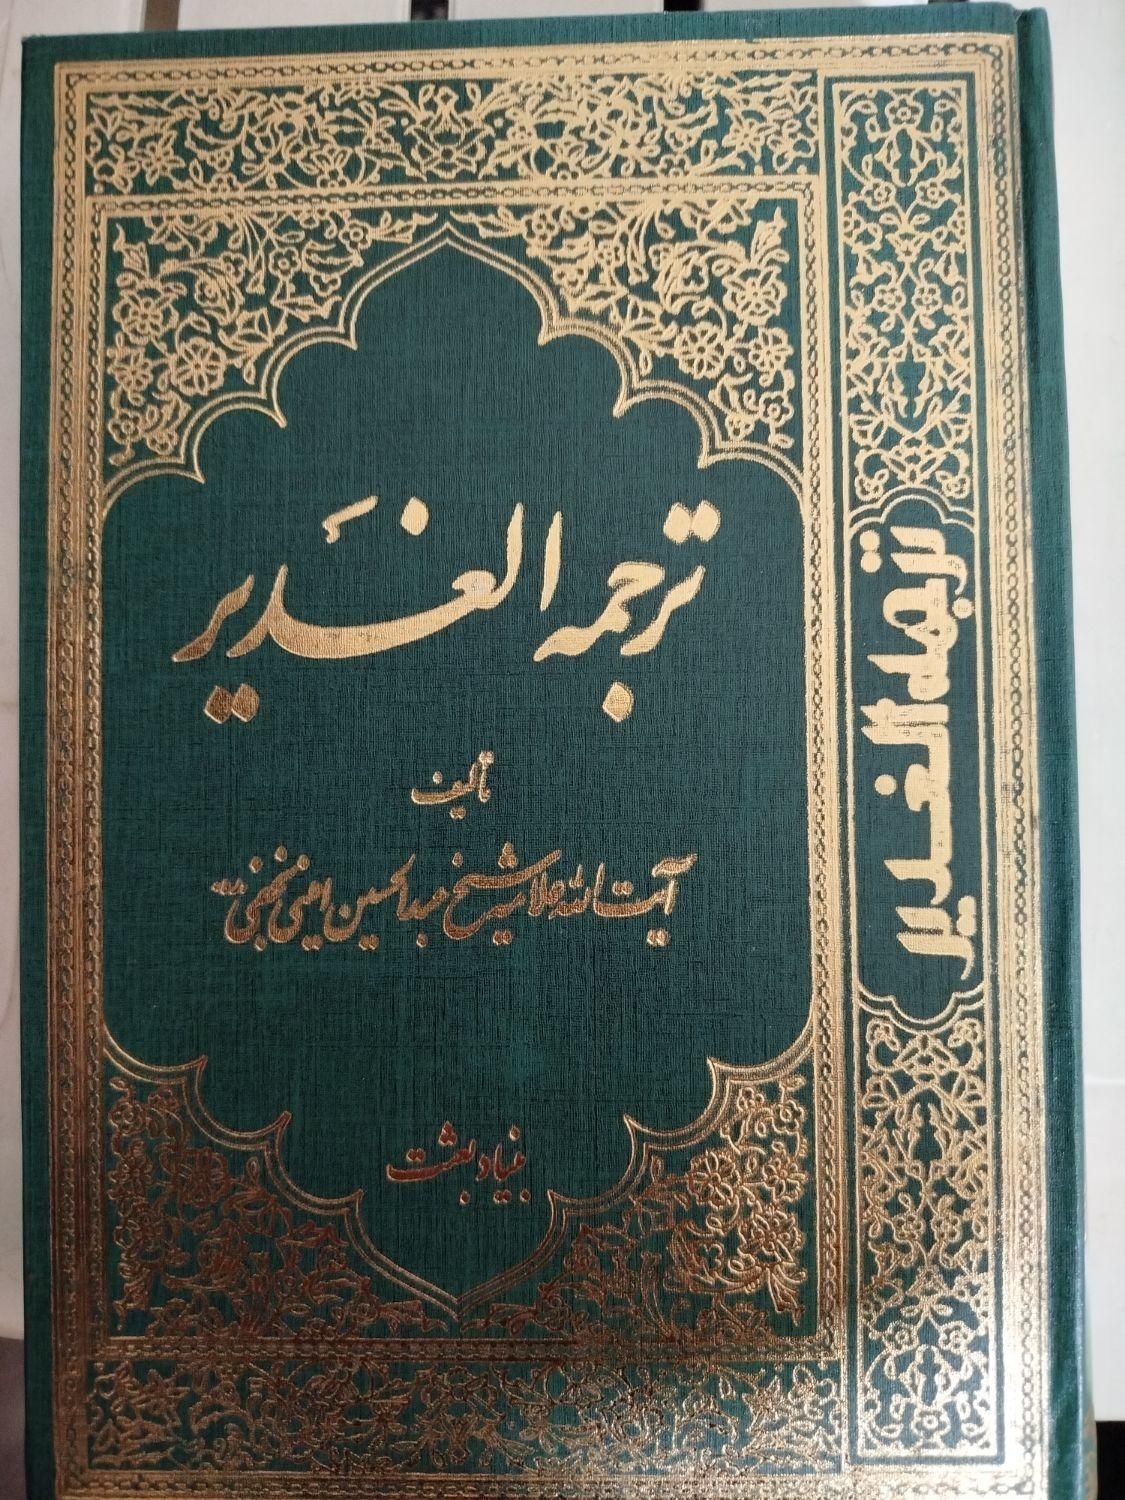 ترجمه الغَدیر
تألیف
آیت الله علامه شیخ عبدالحسین امینی نجفی
بنیاد بعثت
ترجمه الغدیر